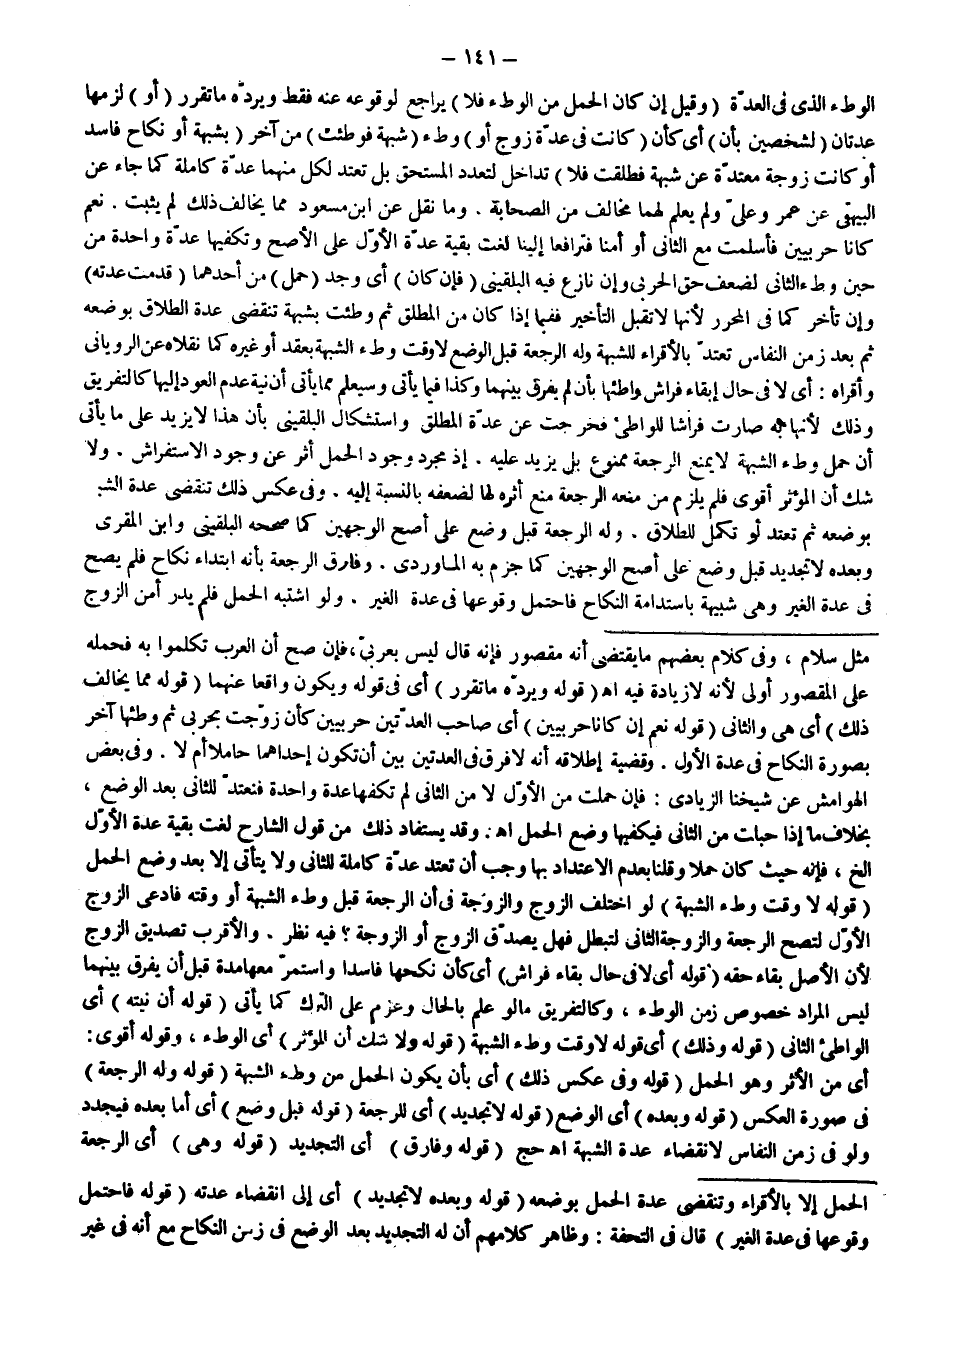 — ١٤١ —
الوطء الذى فى العدّة ( وقيل إن كان الحمل من الوطء فلا ) يراجع لوقوعه عنه فقط ويردّه ماتقرر ( أو ) لزمها
عدتان ( لشخصين بأن ) أى كأن ( كانت فى عدّة زوج أو ) وطء ( شبهة فوطئت ) من آخر ( بشبهة أو نكاح فاسد
أو كانت زوجة معتدّة عن شبهة فطلقت فلا ) تداخل لتعدد المستحق بل تعتد لكل منهما عدّة كاملة كما جاء عن
البيهقى عن عمر وعلىّ ولم يعلم لهما مخالف من الصحابة . وما نقل عن ابن مسعود مما يخالف ذلك لم يثبت . نعم
كانا حربيين فأسلمت مع الثانى أو أمنا فترافعا إلينا لغت بقية عدّة الأوّل على الأصح وتكفيها عدّة واحدة من
حين وطء الثانى لضعف حق الحربى وإن نازع فيه البلقينى ( فإن كان ) أى وجد ( حمل ) من أحدهما ( قدمت عدته )
وإن تأخر كما فى المحرر لأنها لاتقبل التأخير ففيما إذا كان من المطلق ثم وطئت بشبهة تنقضى عدة الطلاق بوضعه
ثم بعد زمن النفاس تعتدّ بالأقراء للشبهة وله الرجعة قبل الوضع لاوقت وطء الشبهة بعقد أو غيره كما نقلاه عن الرويانى
وأقراه : أى لا فى حال إبقاء فراش واطئها بأن لم يفرق بينهما وكذا فيما يأتى وسيعلم مما يأتى أن نية عدم العود إليها كالتفريق
وذلك لأنها به صارت فراشا للواطئ فخرجت عن عدّة المطلق واستشكال البلقينى بأن هذا لايزيد على ما يأتى
أن حمل وطء الشبهة لايمنع الرجعة ممنوع بل يزيد عليه . إذ مجرد وجود الحمل أثر عن وجود الاستفراش . ولا
شك أن المؤثر أقوى فلم يلزم من منعه الرجعة منع أثره لها لضعفه بالنسبة إليه . وفى عكس ذلك تنقضى عدة الشبـ
بوضعه ثم تعتد لو تكمل للطلاق . وله الرجعة قبل وضع على أصح الوجهين كما صححه البلقينى وابن المقرى
وبعده لاتجديد قبل وضع على أصح الوجهين كما جزم به الماوردى . وفارق الرجعة بأنه ابتداء نكاح فلم يصح
فى عدة الغير وهى شبيهة باستدامة النكاح فاحتمل وقوعها فى عدة الغير . ولو اشتبه الحمل فلم يدر أمن الزوج
مثل سلام ، وفى كلام بعضهم مايقتضى أنه مقصور فإنه قال ليس بعربىّ، فإن صح أن العرب تكلموا به فحمله
على المقصور أولى لأنه لازيادة فيه اه ( قوله ويردّه ماتقرر ) أى فى قوله ويكون واقعا عنهما ( قوله مما يخالف
ذلك ) أى هى والثانى ( قوله نعم إن كانا حربيين ) أى صاحب العدّتين حربيين كأن زوّجت بحربى ثم وطئها آخر
بصورة النكاح فى عدة الأول . وقضية إطلاقه أنه لافرق فى العدتين بين أن تكون إحداهما حاملا أم لا . وفى بعض
الهوامش عن شيخنا الزيادى : فإن حملت من الأوّل لا من الثانى لم تكفها عدة واحدة فنعتدّ للثانى بعد الوضع ،
بخلاف ما إذا حبلت من الثانى فيكفيها وضع الحمل اه . وقد يستفاد ذلك من قول الشارح لغت بقية عدة الأوّل
الخ ، فإنه حيث كان حملا وقلنا بعدم الاعتداد بها وجب أن تعتد عدّة كاملة للثانى ولا يتأتى إلا بعد وضع الحمل
( قوله لا وقت وطء الشبهة ) لو اختلف الزوج والزوجة فى أن الرجعة قبل وطء الشبهة أو وقته فادعى الزوج
الأوّل لتصح الرجعة والزوجة الثانى لتبطل فهل يصدّق الزوج أو الزوجة ؟ فيه نظر . والأقرب تصديق الزوج
لأن الأصل بقاء حقه ( قوله أى لا فى حال بقاء فراش ) أى كأن نكحها فاسدا واستمرّ معها مدة قبل أن يفرق بينهما
ليس المراد خصوص زمن الوطء ، وكالتفريق مالو علم بالحال وعزم على الترك كما يأتى ( قوله أن نيته ) أى
الواطئ الثانى ( قوله وذلك ) أى قوله لاوقت وطء الشبهة ( قوله ولا شك أن المؤثر ) أى الوطء ، وقوله أقوى :
أى من الأثر وهو الحمل ( قوله وفى عكس ذلك ) أى بأن يكون الحمل من وطء الشبهة ( قوله وله الرجعة )
فى صورة العكس ( قوله وبعده ) أى الوضع ( قوله لاتجديد ) أى للرجعة ( قوله قبل وضع ) أى أما بعده فيجدد
ولو فى زمن النفاس لانقضاء عدة الشبهة اه حج ( قوله وفارق ) أى التجديد ( قوله وهى ) أى الرجعة
الحمل إلا بالأقراء وتنقضى عدة الحمل بوضعه ( قوله وبعده لاتجديد ) أى إلى انقضاء عدته ( قوله فاحتمل
وقوعها فى عدة الغير ) قال فى التحفة : وظاهر كلامهم أن له التجديد بعد الوضع فى زمن النكاح مع أنه فى غير